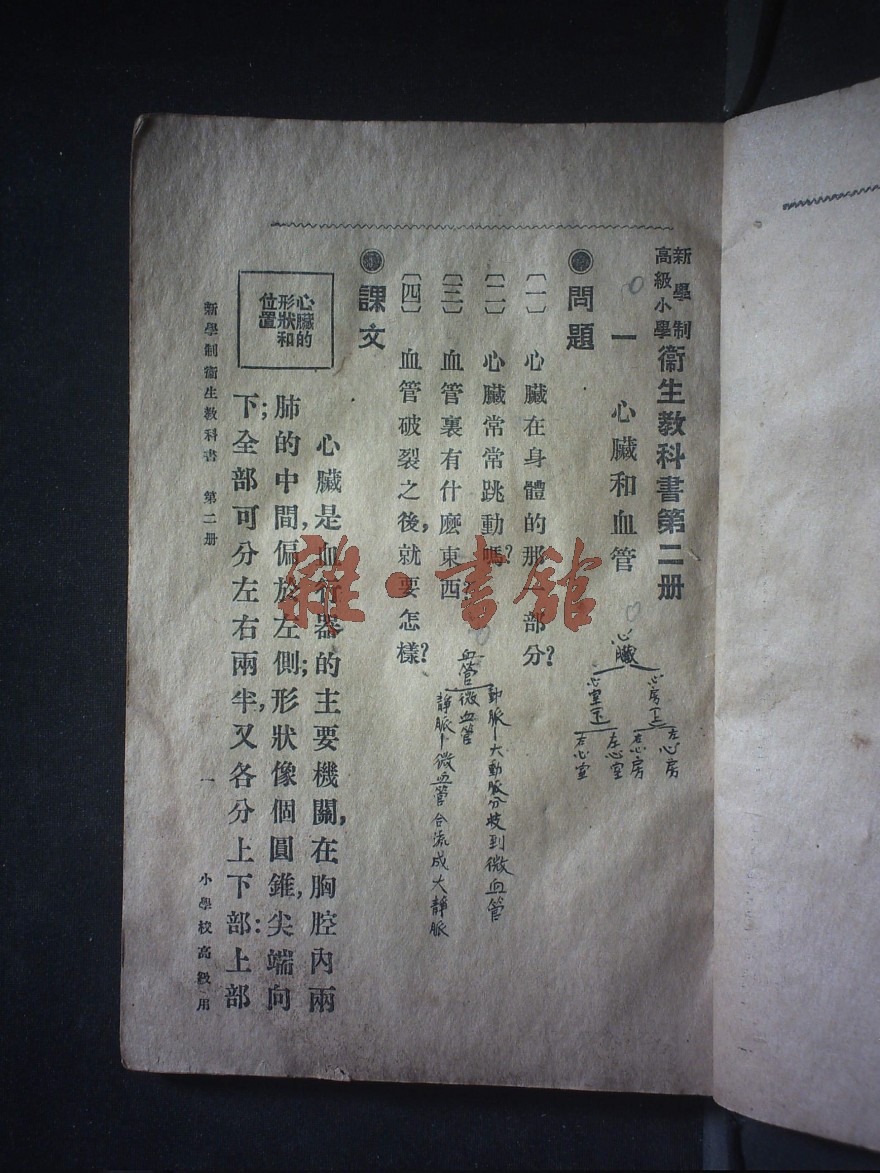 新學制
高級小學
衞生教科書第二册
一　心臟和血管
心臟
心房(上)
左心房
右心房
心室(下)
左心室
右心室
問題
〔一〕心臟在身體的那一部分?
〔二〕心臟常常跳動嗎?
〔三〕血管裏有什麽東西?
〔四〕血管破裂之後,就要怎樣?
血管
動脈－大動脈分歧到微血管
微血管
靜脈－微血管合流成大靜脈
課文
心臟的
形狀和
位置
心臟是血行器的主要機關,在胸腔內兩
肺的中間,偏於左側;形狀像個圓錐,尖端向
下;全部可分左右兩半,又各分上下部:上部
新學制衞生教科書　第二册
一
小學校高級用
雜·書舘